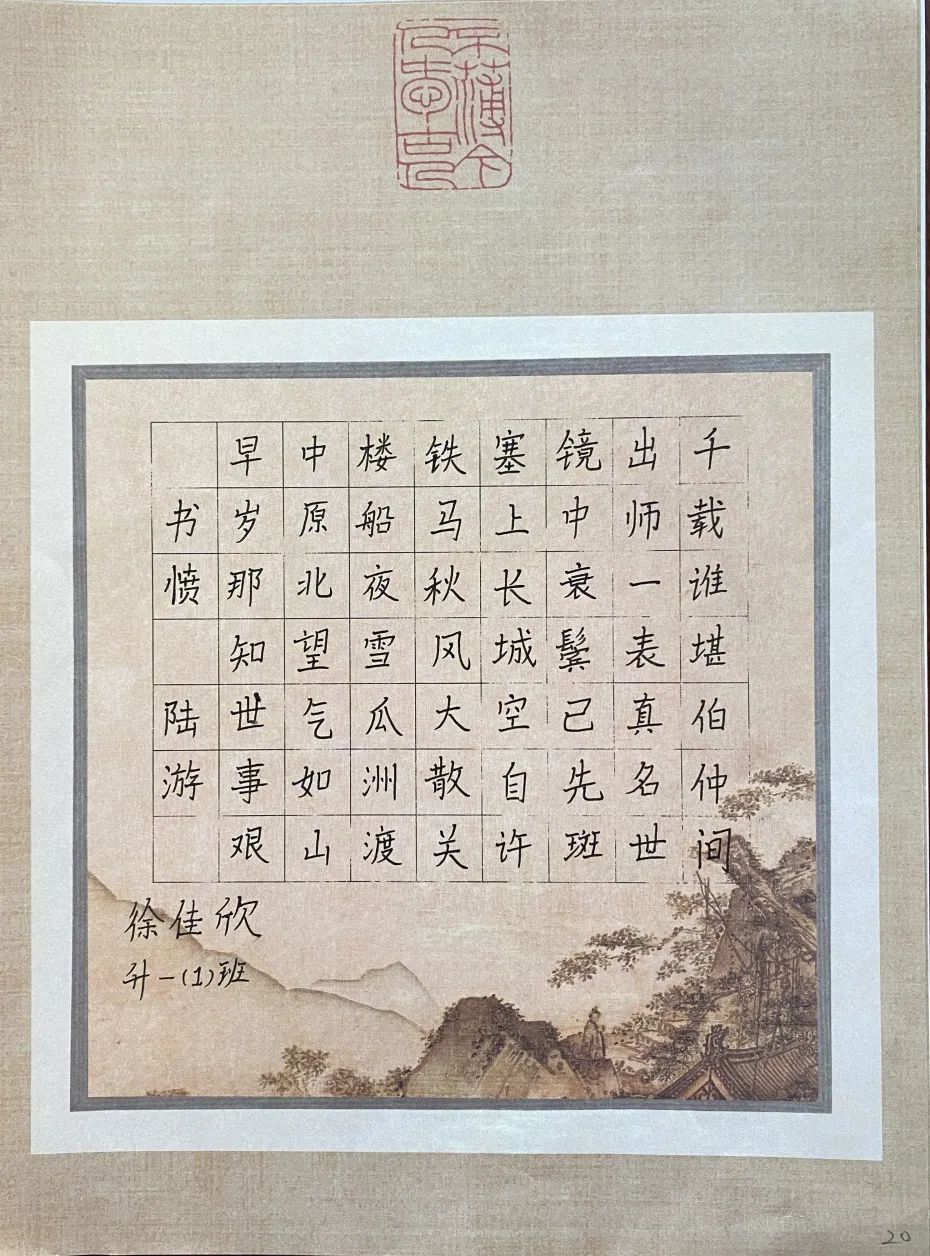 不薄今人爱古人
书愤 陆游
早岁那知世事艰
中原北望气如山
楼船夜雪瓜洲渡
铁马秋风大散关
塞上长城空自许
镜中衰鬓已先斑
出师一表真名世
千载谁堪伯仲间
徐佳欣
升一(1)班
20